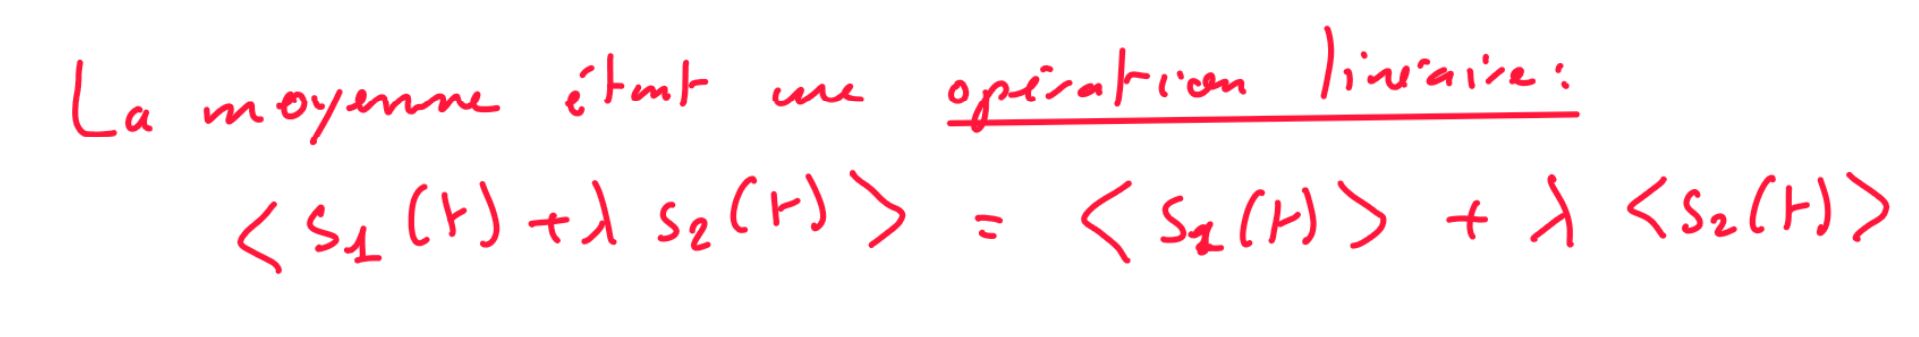 La moyenne étant une opération linéaire :
< s₁(t) + λ s₂(t) > = < s₁(t) > + λ < s₂(t) >